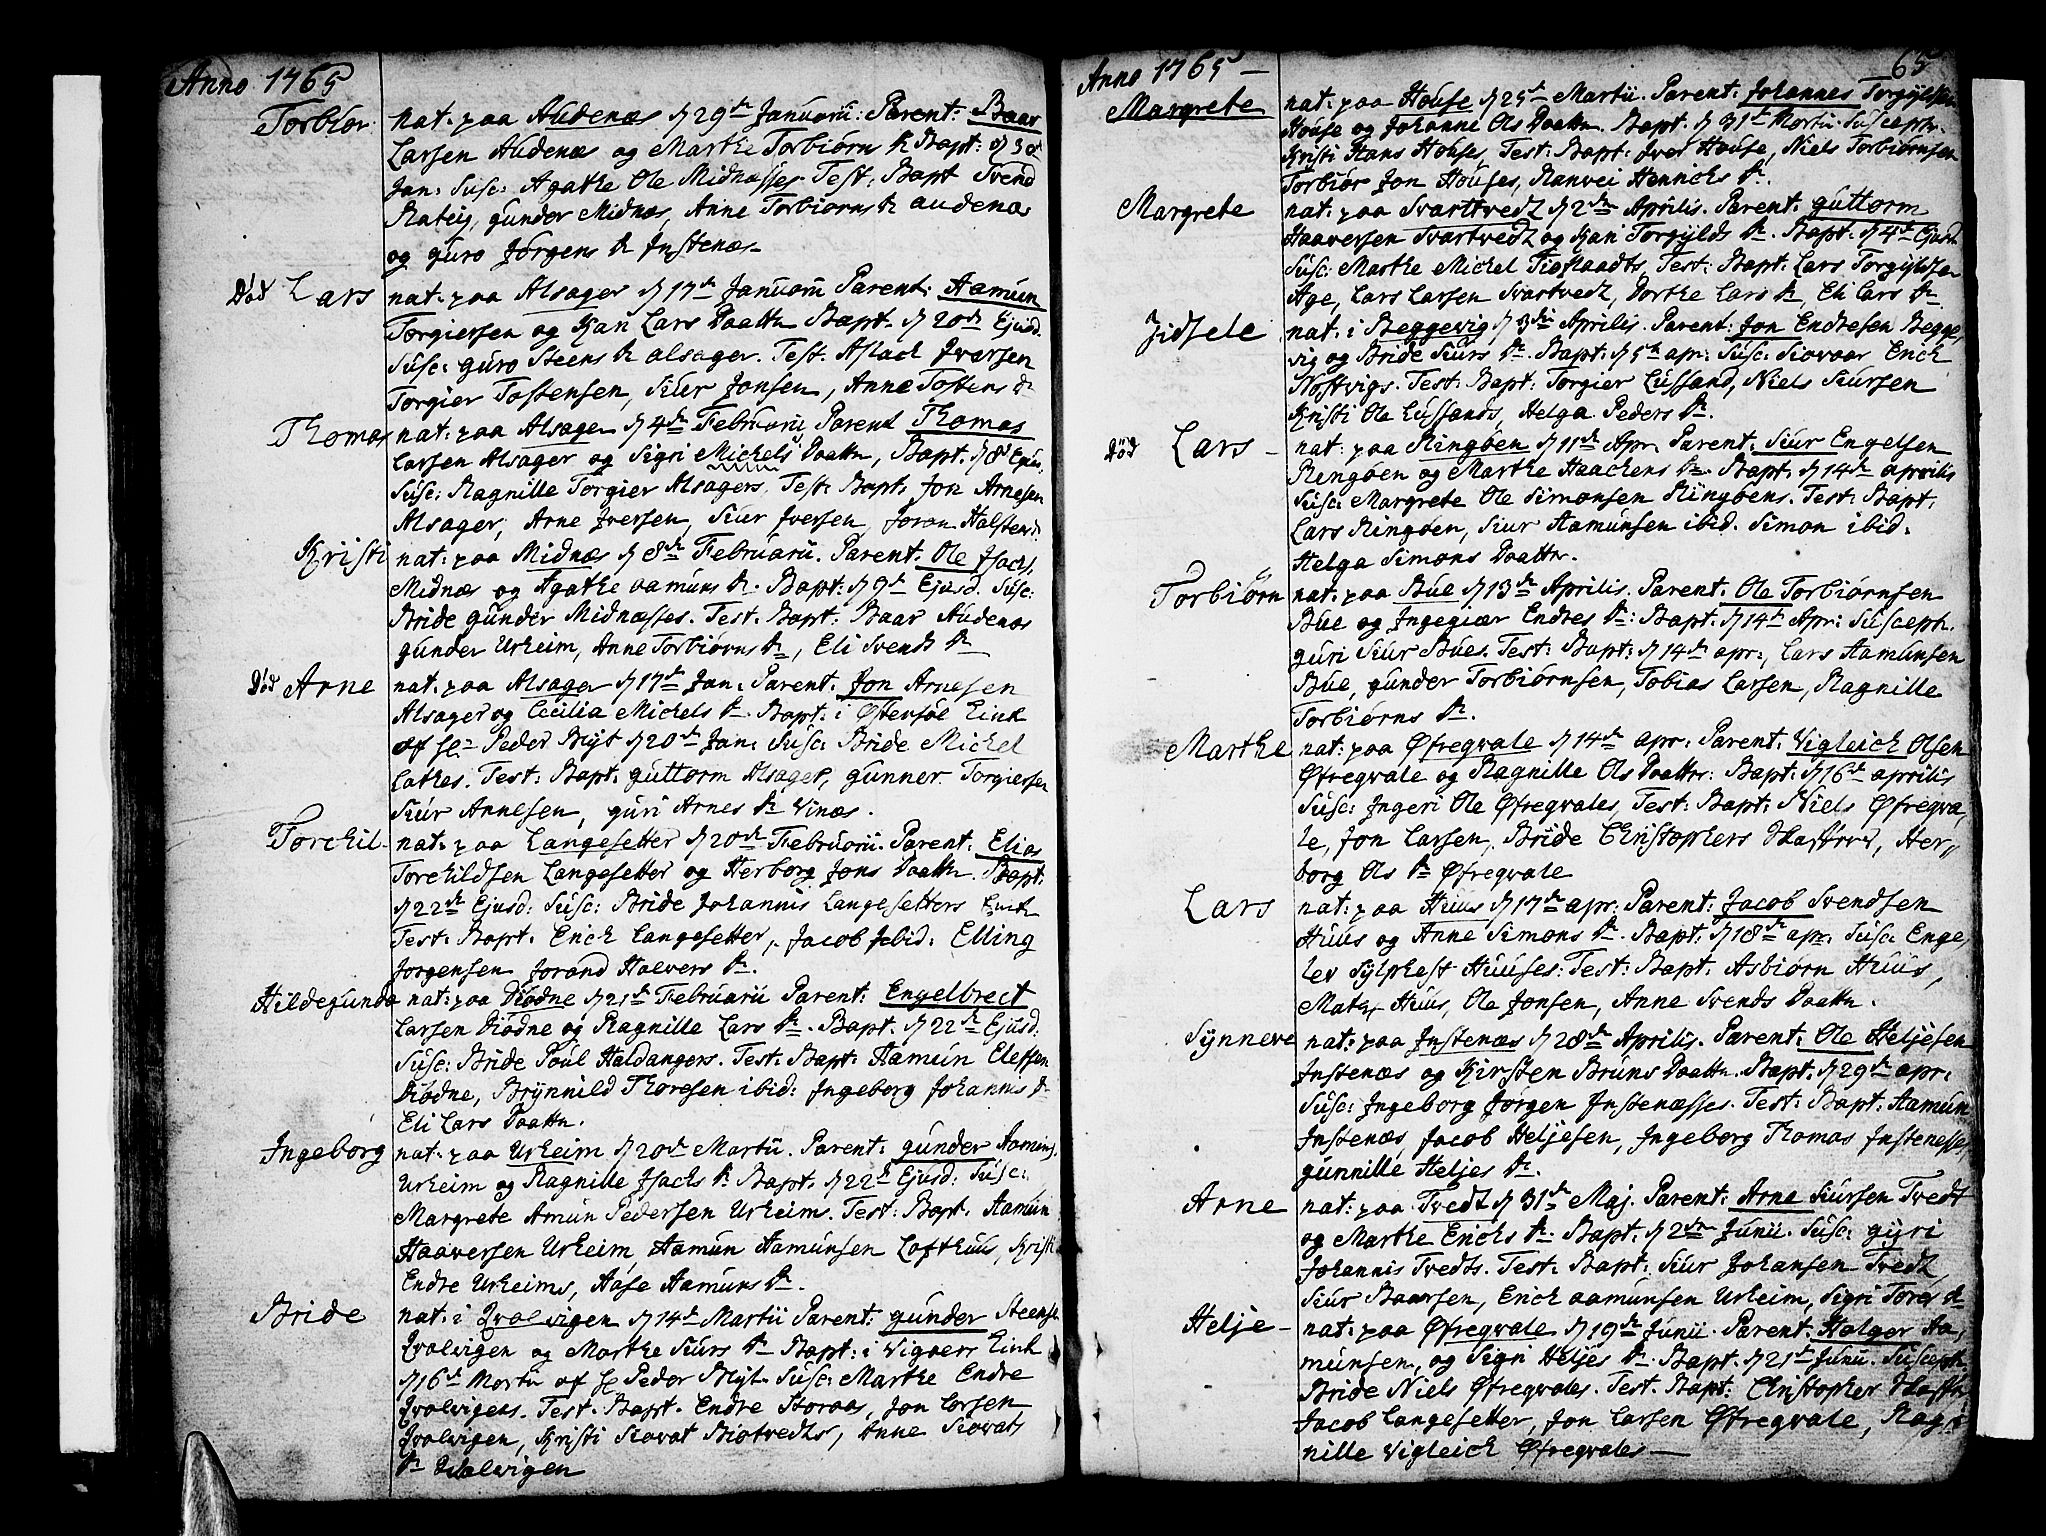 Anno 1765
Torbiør nat: paa Audenæs d 29de Januarii: Parent: Baar
Larsen Audenæs og Marthe Torbiørns dr Bapt: d 30d
Jan: Susc: Agathe Ole Midnæsses Test: Bapt Svend
Rateig, gunder Midnæs, Anne Torbiørns dr audenæs
og guro Jørgens dr Instenæs
Død Lars nat: paa Alsager d 17de Januarii Parent: Aamun
Torgiersen og Kari Lars Daattr Bapt. d 20d Ejusd.
Susc: guro Steens dr alsager. Test. Aslach Iversen
Torgier Tostensen, Siur Jonsen, Anne Tostens dr
Thomas nat: paa Alsager d 4de Februarii Parent Thomas
Larsen Alsager og Sigri Michels Daattr, Bapt. d 8d Ejus.
Susc: Ragnille Torgier Alsagers. Test: Bapt. Jon Arnesen
Alsager, Arne Iversen, Siur Iversen, Joran Halstens
Kristi nat: paa Midnæs d 8de Februarii. Parent. Ole Isachs.
Midnæs og Agathe aamuns dr. Bapt: d 9d Ejusd. Susc:
Bride gunder Midnæsses. Test. Bapt: Baar Audenæs
gunder Urheim, Anne Torbiørns dr, Eli Svends dr
Død Arne nat: paa Alsager d 17de Jan: Parent: Jon Arnesen
Alsager og Cecilia Michels dr. Bapt: i Østensøe Kirk
af Hr Peder Blyt d 20de Jan: Susc: Bride Michel
Lathes. Test: Bapt: guttorm Alsager, gunner Torgiersen
Siur Arnesen, guri Arnes dr Vinæs.
Torchil nat: paa Langesetter d 20de Februarii. Parent: Elias
Torchildsen Langesetter og Herborg Jons Daattr. Bapt:
d 22de Ejusd: Susc: Bride Johannis Langesetters
Test: Bapt: Erich Langesetter, Jacob Ibid: Elling
Jorgensen Jorand Halvers dr.
Hildegunda nat: paa Diødne d 21de Februarii Parent: Engelbrect
Larsen Diødne og Ragnille Lars dr. Bapt. d 22de Ejusd.
Susc: Bride Poul Haldangers. Test: Bapt: Aamun Elefsen
Diødne, Brynnild Thoresen ibid: Ingeborg Johannis dr
Eli Lars Daattr.
Ingeborg nat: paa Urheim d 20de Martii. Parent: gunder Aamuns.
Urheim og Ragnille Isachs dr Bapt. d 22d Ejusd: Susc:
Margrete Amun Pedersen Urheims. Test: Bapt. Aamun
Haaversen Urheim, Aamun Aamunsen Lofthuus, Kristi
Endre Urheims, Aase Aamuns dr.
Bride nat: i Qvalvigen d 14de Martii Parent: gunder Steens.
Qvalvigen og Marthe Siurs dr Bapt: i Vigøers Kirk
d 16de Martii af Hr Peder Blyt. Susc: Marthe Endre
Qvalvigens. Test. Bapt. Endre Storaas, Jon Larsen
Qvalvigen, Kristi Siovat Biotvedts, Anne Siovats
dr Qvalvigen
65
Anno 1765
Margrete nat: paa House d 25de Martii. Parent: Johannes Torgyldsen
House og Johanne Ols Daattr. Bapt. d 31de Martii. Susceptr.
Kristi Hans Houses, Test: Bapt: Iver House, Niels Torbiørnsen
Torbiør Jon Houses, Ranvei Henrichs dr.
Margrete nat: paa Svartvedt d 2den Aprilis. Parent. guttorm
Haaversen Svartvedt og Kari Torgylds dr. Bapt: d 4de Ejusd.
Susc: Marthe Michel Tiostaadts, Test: Bapt: Lars Torgyldsen
Age, Lars Larsen Svartvedt, Dorthe Lars dr, Eli Lars dr
Zidsele nat: i Beggevig d 3die Aprilis. Parent: Jon Endresen Begge,
vig og Bride Siurs dr. Bapt: d 5te apr: Susc: Siovaar Erich
Nostvigs. Test: Bapt: Torgier Lussand, Niels Siursen
Kristi Ole Lussands, Helga Peders dr.
Død Lars nat: paa Ringøen d 11te Apr. Parent: Siur Engelsen
Ringøen og Marthe Haachens dr. Bapt. d 14de aprilis
Susc: Margrete Ole Simonsen Ringøens. Test: Bapt:
Lars Ringøen, Siur Aamunsen ibid. Simon ibid:
Helga Simons Daattr.
Torbiørn nat: paa Bue d 13de Aprilis. Parent. Ole Torbiørnsen
Bue og Ingegiær Endres dr: Bapt. d 14de Apr: Susceptr.
guri Siur Bues. Test: Bapt: d 14de apr:, Lars Aamunsen
Bue, gunder Torbiørnsen, Tobias Larsen, Ragnille
Torbiørns dr.
Marthe nat: paa Øfregvale d 14de apr: Parent. Vigleich Olsen
Øfregvale og Ragnille Ols Daattr: Bapt: d 16de aprilis
Susc: Ingeri Ole Øfregvales, Test: Bapt: Niels Øfregva,
le, Jon Larsen, Bride Christophers, Her„
borg Ols dr Øfregvale
Lars nat: paa Huus d 17de apr: Parent: Jacob Svendsen
Huus og Anne Simons dr. Bapt: d 18de apr: Susc: Enge,
lev Sylphest Huuses: Test: Bapt. Asbiørn Huus,
Mats Huus, Ole Jonsen, Anne Svends Daattr.
Synneve nat: paa Instenæs d 28de Aprilis. Parent: Ole Heljesen
Instenæs og Kirsten Bruns Daattr. Bapt. d 29de apr:
Susc: Ingeborg Jorgen Instenæsses. Test: Bapt: Aamun
Instenæs, Jacob Heljesen, Ingeborg Thomas Instenesses
gunnille Heljes dr.
Arne nat: paa Tvedt d 31de Maj. Parent: Arne Siursen Tvedt
og Marthe Erichs dr: Bapt: d 2den Junii. Susc: gyri
Johannis Tvedts. Test: Bapt: Siur Johansen Tvedt,
Siur Baarsen, Erich aamunsen Urheim, Sigri Tores dr
Helje nat: paa Øfregvale d 19de Junii. Parent. Holger Aa,
munsen, og Sigri Heljes dr. Bapt. d 21de Junii. Susceptr.
Bride Niels Øfregvales. Test. Bapt: Christopher
Jacob Langesetter, Jon Larsen Øfregvale, Rag„
nille Vigleich Øfregvales